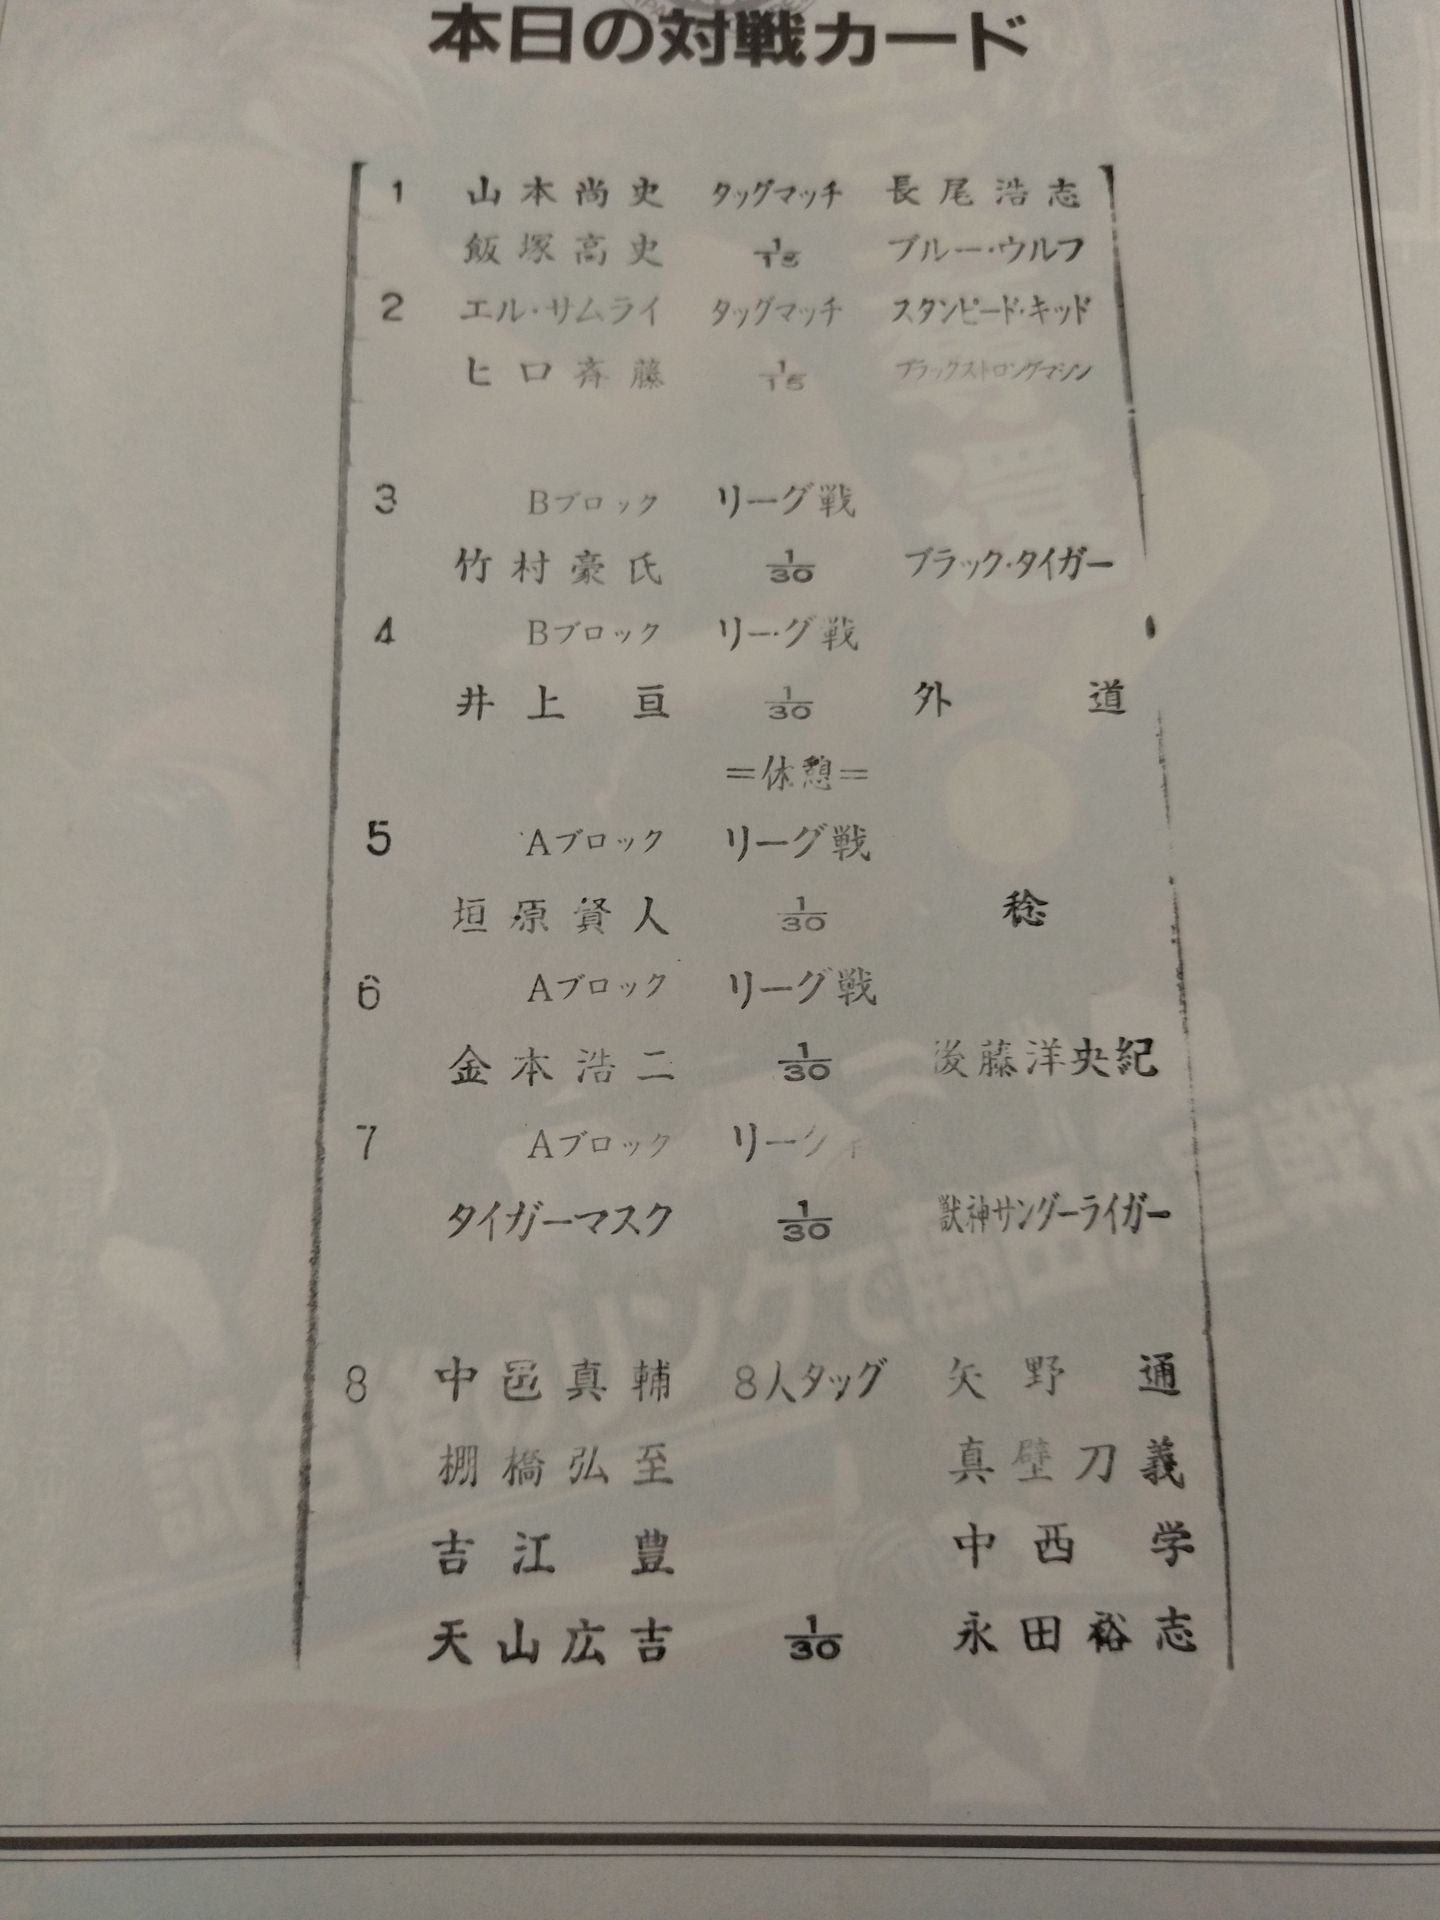 本日の対戦カード
1 山本尚史 タッグマッチ 長尾浩志
飯塚高史 1/15 ブルー・ウルフ
2 エル・サムライ タッグマッチ スタンピード・キッド
ヒロ斉藤 1/15 ブラックストロングマシン
3 Bブロック リーグ戦
竹村豪氏 1/30 ブラック・タイガー
4 Bブロック リーグ戦
井上亘 1/30 外道
=休憩=
5 Aブロック リーグ戦
垣原賢人 1/30 稔
6 Aブロック リーグ戦
金本浩二 1/30 後藤洋央紀
7 Aブロック リーグ
タイガーマスク 1/30 獣神サンダーライガー
8 中邑真輔 8人タッグ 矢野通
棚橋弘至 真壁刀義
吉江豊 中西学
天山広吉 1/30 永田裕志